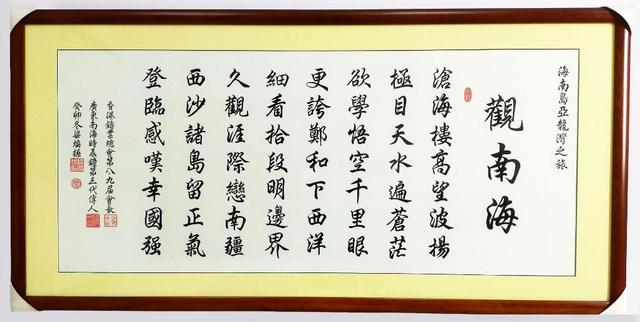 海南島亞龍灣之旅
觀南海
滄海樓高望波揚
極目天水遍蒼茫
欲學悟空千里眼
更誇鄭和下西洋
細看拾段明邊界
久觀涯際戀南疆
西沙諸島留正氣
登臨感嘆幸國强
香港鑄業總會第八九届會長
廣東南海時泰鑄第三代傳人
癸卯冬梁煥操